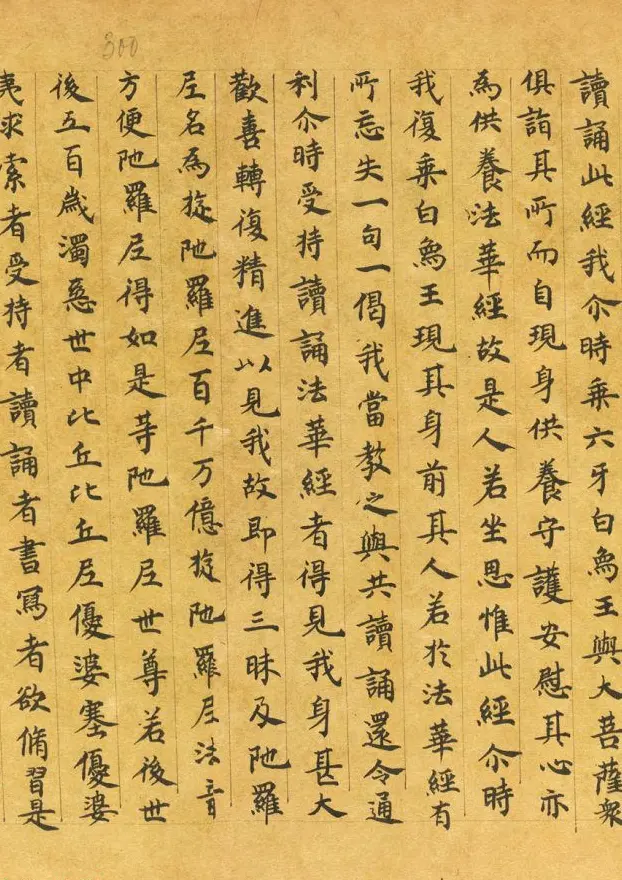 300
讀誦此經我尒時乗六牙白象王與大菩薩衆
俱詣其所而自現身供養守護安慰其心亦
為供養法華經故是人若坐思惟此經尒時
我復乗白象王現其身前其人若於法華經有
所忘失一句一偈我當教之與共讀誦還令通
利尒時受持讀誦法華經者得見我身甚大
歡喜轉復精進以見我故即得三昧及陁羅
尼名為旋陁羅尼百千万億旋陁羅尼法音
方便陁羅尼得如是等陁羅尼世尊若後世
後五百歲濁惡世中比丘比丘尼優婆塞優婆
夷求索者受持者讀誦者書寫者欲脩習是